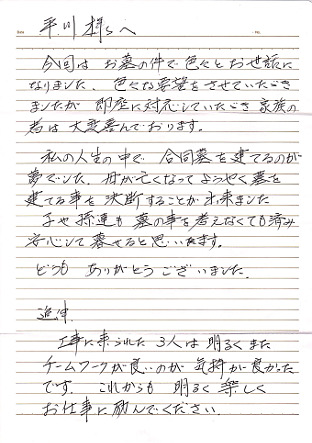 平川様へ
今回は お墓の件で色々とお世話に
なりました。色々な要望をさせていただき
ましたが 即座に対応していただき 家族の
者は 大変喜んでおります。
私の人生の中で 合同墓を建てるのが
夢でした。母が亡くなって ようやく墓を
建てる事を 決断することが出来ました
子や孫達も 墓の事を考えなくても済み
安心して暮せると思います。
どうも ありがとうございました。
追申
工事に来られた 3人は 明るく また
チームワークが良いのが 気持が良かった
です。これからも 明るく 楽しく
お仕事に励んでください。